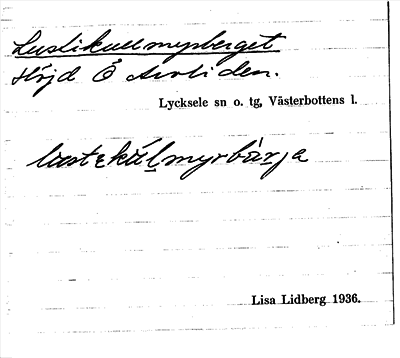 Lustikullmyrberget
Höjd Ö Arvliden.
Lycksele sn o. tg, Västerbottens l.
Lisa Lidberg 1936.